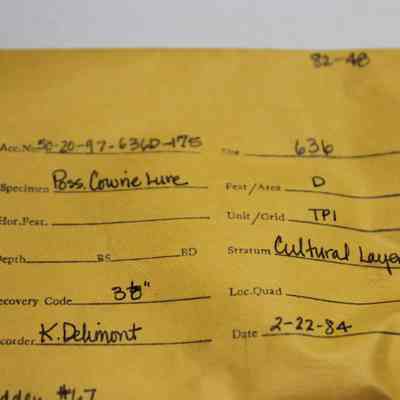 82-48
Acc.No. 50-20-97-636D-175 636
Specimen Poss. Cowrie Lure Feat/Area D
Hor.Feat. Unit/Grid TP1
Depth BS BD Stratum Cultural Layer
Recovery Code Loc.Quad
Recorder K. Delimont Date 2-22-84
#67